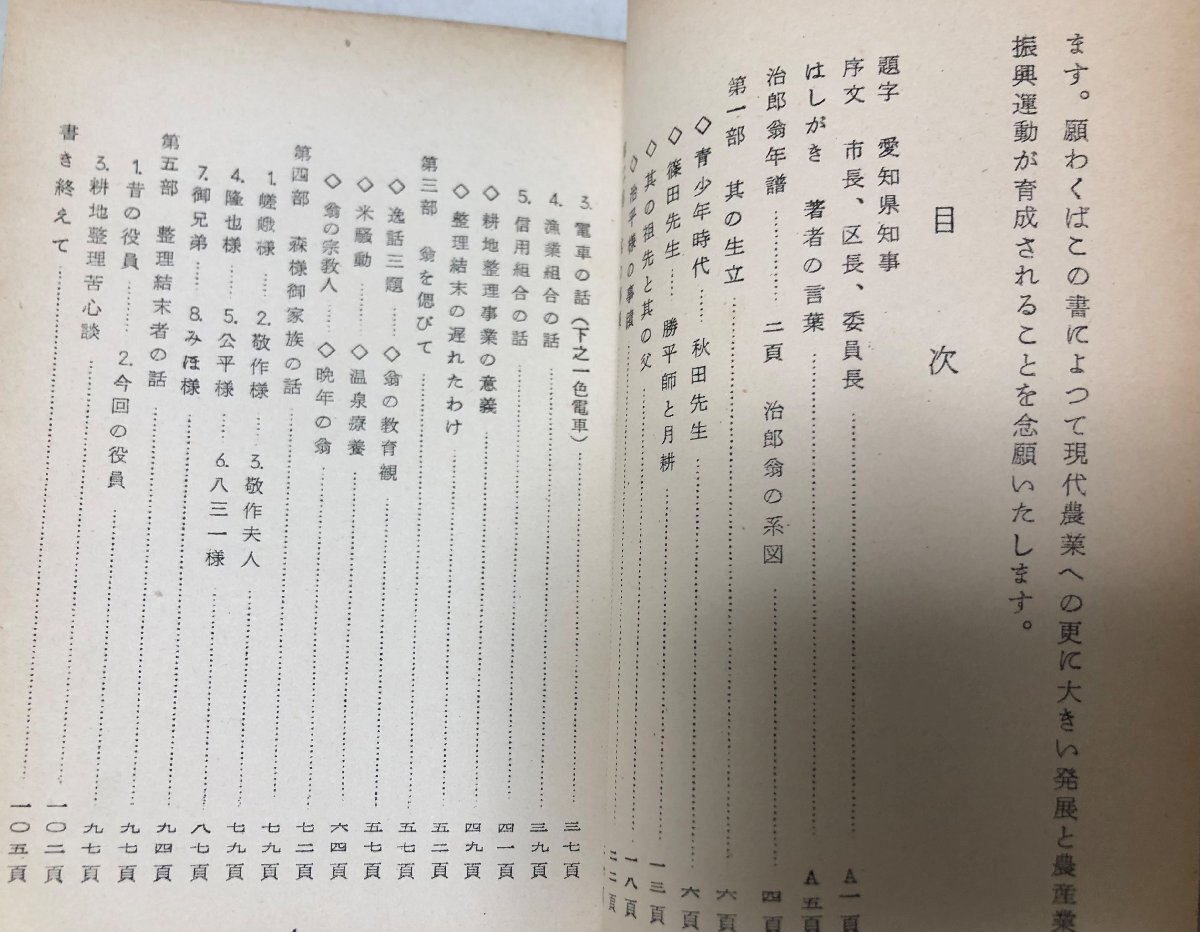 ます。願わくばこの書によつて現代農業への更に大きい発展と農産業
振興運動が育成されることを念願いたします。
目次
題字 愛知県知事
序文 市長、区長、委員長……A一頁
はしがき 著者の言葉……A五頁
治郎翁年譜……二頁 治郎翁の系図……四頁
第一部 其の生立……六頁
◇青少年時代……秋田先生……六頁
◇篠田先生……勝平師と月耕……一三頁
◇其の祖先と其の父……一八頁
◇治平様の事蹟……二二頁
3.電車の話(下之一色電車)……三七頁
4.漁業組合の話……三九頁
5.信用組合の話……四一頁
◇耕地整理事業の意義……四九頁
◇整理結末の遅れたわけ……五二頁
第三部 翁を偲びて……五七頁
◇逸話三題……◇翁の教育観……五七頁
◇米騒動……◇温泉療養……六四頁
◇翁の宗教人……◇晩年の翁……七二頁
第四部 森様御家族の話……七九頁
1.嵯峨様……2.敬作様……3.敬作夫人
4.隆也様……5.公平様……6.八三一様……七九頁
7.御兄弟……8.みほ様……八七頁
第五部 整理結末者の話……九四頁
1.昔の役員……2.今回の役員……九七頁
3.耕地整理苦心談……九七頁
書き終えて……一〇二頁
一〇五頁